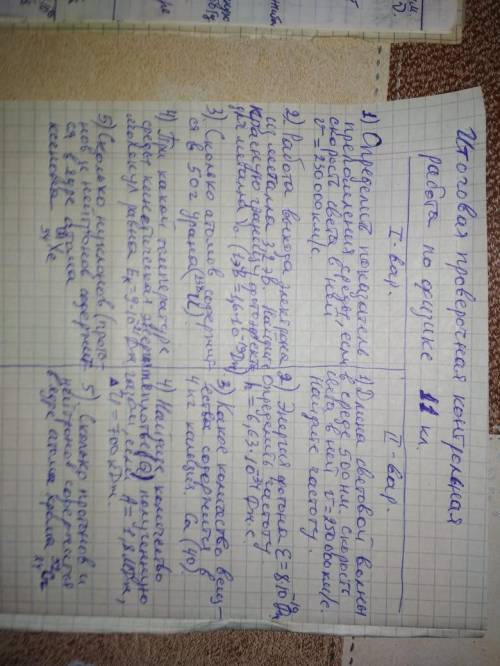 Итоговая проверочная контрольная
работа по физике 11 кл.
I-вар.
1) Определить показатель
преломления среды, если
скорость света в ней
v = 250000 км/с
2) Работа выхода электрона
из металла 3,2 эВ. Найдите
красную границу фотоэффекта
для металла
3) Сколько атомов содержит-
ся в 50 г урана
4) При какой температуре
средняя кинетическая энергия
молекул равна
5) Сколько нуклонов (прото-
нов и нейтронов содержит-
ся в ядре атома
ксенона
II-вар.
1) Длина световой волны
в среде 500 нм. скорость
света в ней v = 250000 км/с
Найдите частоту.
2) Энергия фотона E = 8·10⁻¹⁹ Дж
Определить частоту
h = 6,63·10⁻³⁴ Дж·с
3) Какое количество веще-
ства содержится в
4 кг кальция Ca (40)
4) Найдите количество
теплоты (Q) полученную
газом, если
ΔU = 700 кДж.
5) Сколько протонов и
нейтронов содержится
в ядре атома хрома